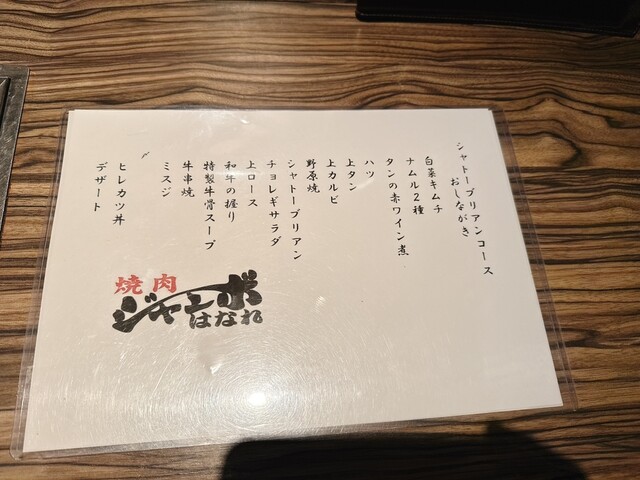 シャトーブリアンコース
おしながき
白菜キムチ
ナムル2種
タンの赤ワイン煮
ハツ
上タン
上カルビ
野原焼
シャトーブリアン
チョレギサラダ
上ロース
和牛の握り
特製牛骨スープ
牛串焼
ミスジ
ヒレカツ丼
デザート
焼肉
ジャンボ
はなれ